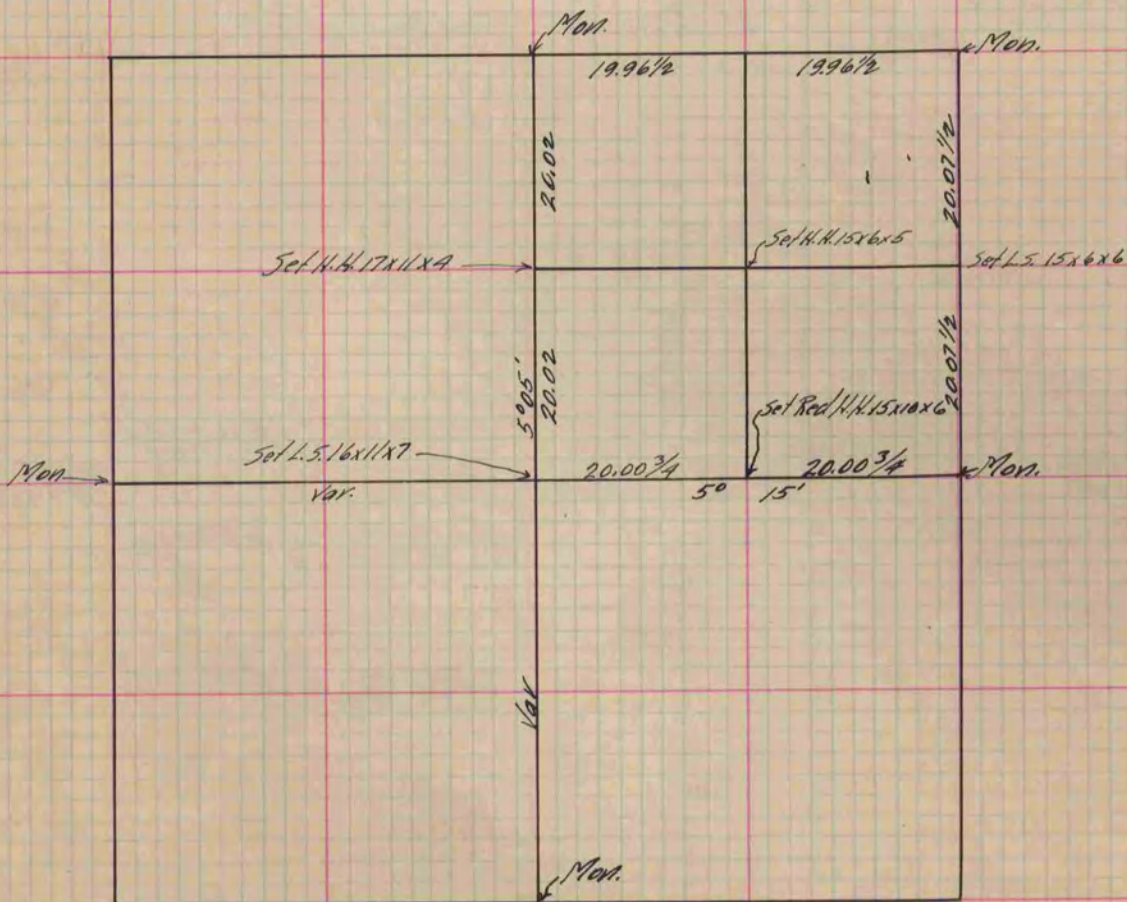 Mon.
Mon.
19.96 1/2
19.96 1/2
20.02
20.07 1/2
Set H.H. 15x6x5
Set H.H. 17x11x4
Set L.S. 15x6x6
20.07 1/2
5°05'
20.02
Set Red H.H. 15x10x6
Set L.S. 16x11x7
Mon.
20.00 3/4
20.00 3/4
Mon.
Var.
5° 15'
Var
Mon.